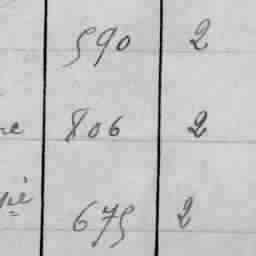 590 2
806 2
675 2